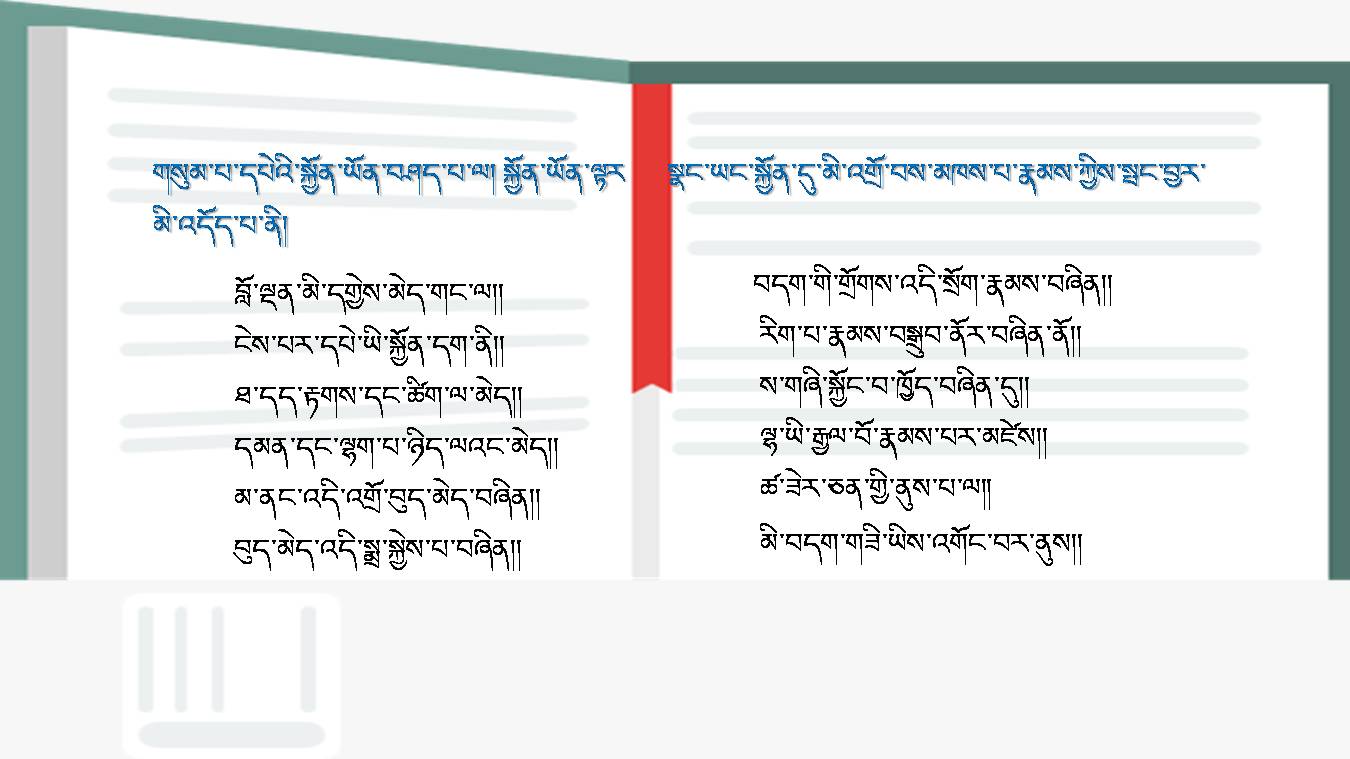 གསུམ་པ་དཔེའི་སྐྱོན་ཡོན་བཤད་པ་ལ། སྐྱོན་ཡོན་ལྟར་སྣང་ཡང་སྐྱོན་དུ་མི་འགྲོ་བས་མཁས་པ་རྣམས་ཀྱིས་སྤང་བྱར་
མི་འདོད་པ་ནི།
བློ་ལྡན་མི་དགྱེས་མེད་གང་ལ།།
ངེས་པར་དཔེ་ཡི་སྐྱོན་དག་ནི།།
ཐ་དད་རྟགས་དང་ཚིག་ལ་མེད།།
དམན་དང་ལྷག་པ་ཉིད་ལའང་མེད།།
མ་ནང་འདི་འགྲོ་བུད་མེད་བཞིན།།
བུད་མེད་འདི་སྨྲ་སྐྱེས་པ་བཞིན།།
བདག་གི་གྲོགས་འདི་སྲོག་རྣམས་བཞིན།།
རིག་པ་རྣམས་བསྒྲུབ་ནོར་བཞིན་ནོ།།
ས་གཞི་སྐྱོང་བ་ཁྱོད་བཞིན་དུ།།
ལྷ་ཡི་རྒྱལ་པོ་རྣམས་པར་མཛེས།།
ཚ་ཟེར་ཅན་གྱི་ནུས་པ་ལ།།
མི་བདག་གཟི་ཡིས་འགོང་བར་ནུས།།